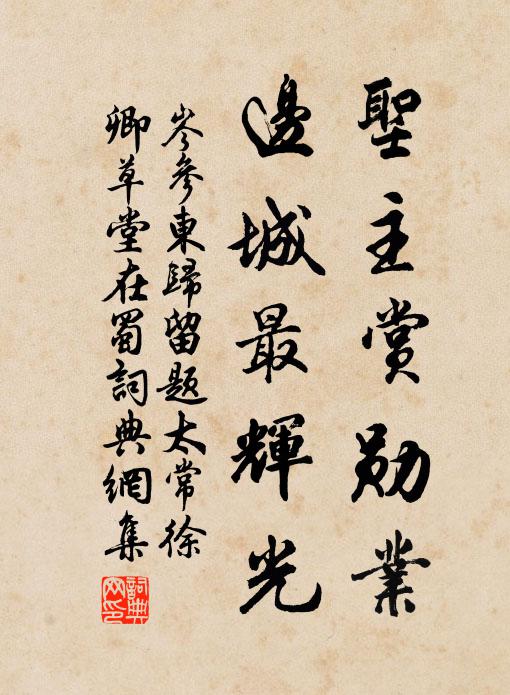 聖主賞勛業
邊城最輝光
岑參東歸留題太常徐
卿草堂在蜀詞典網集
詞典
网印